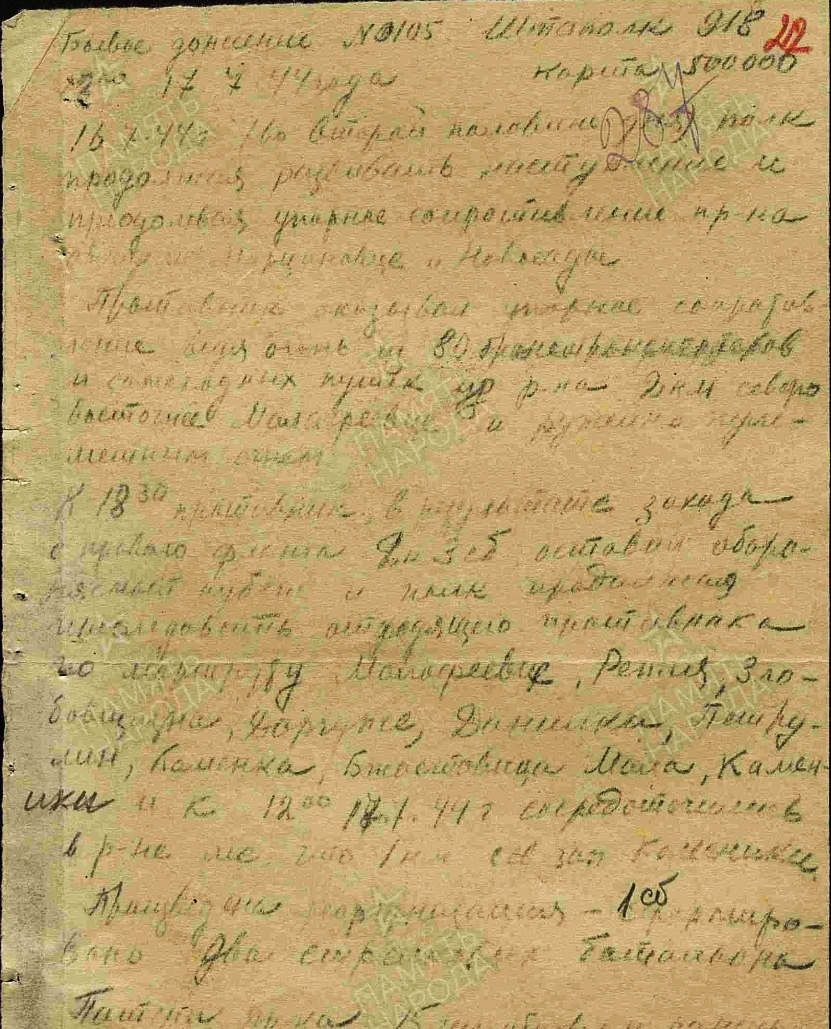 Боевое донесение №0105 Штаполк 918 22
17 7 44 года карта 500000
16.7.44г во второй половине дня полк
продолжая развивать наступление и
преодолевая упорное сопротивление пр-ка
и Новоселды
Противник оказывал упорное сопротив-
ление ведя огонь из 80 бронетранспортеров
и самоходных пушек из р-на 2км северо
восточнее Малафеевце и ружейно пуле-
метным огнем
К 18 30 противник в результате захода
с правого фланга 2 и 3 сб оставил оборо-
няемый рубеж и полк продолжал
преследовать отходящего противника
по маршруту Малафеевце, Репля, Зло-
бовщизна, Доргуже, Данилки, Петру-
лин, Каменка, Бжостовица Мала, Камен-
ики и к 12 00 17.7.44 г сосредоточились
в р-не 1 км сев зап Каменики.
Произведена реорганизация - 1 сб
два стрелковых батальона